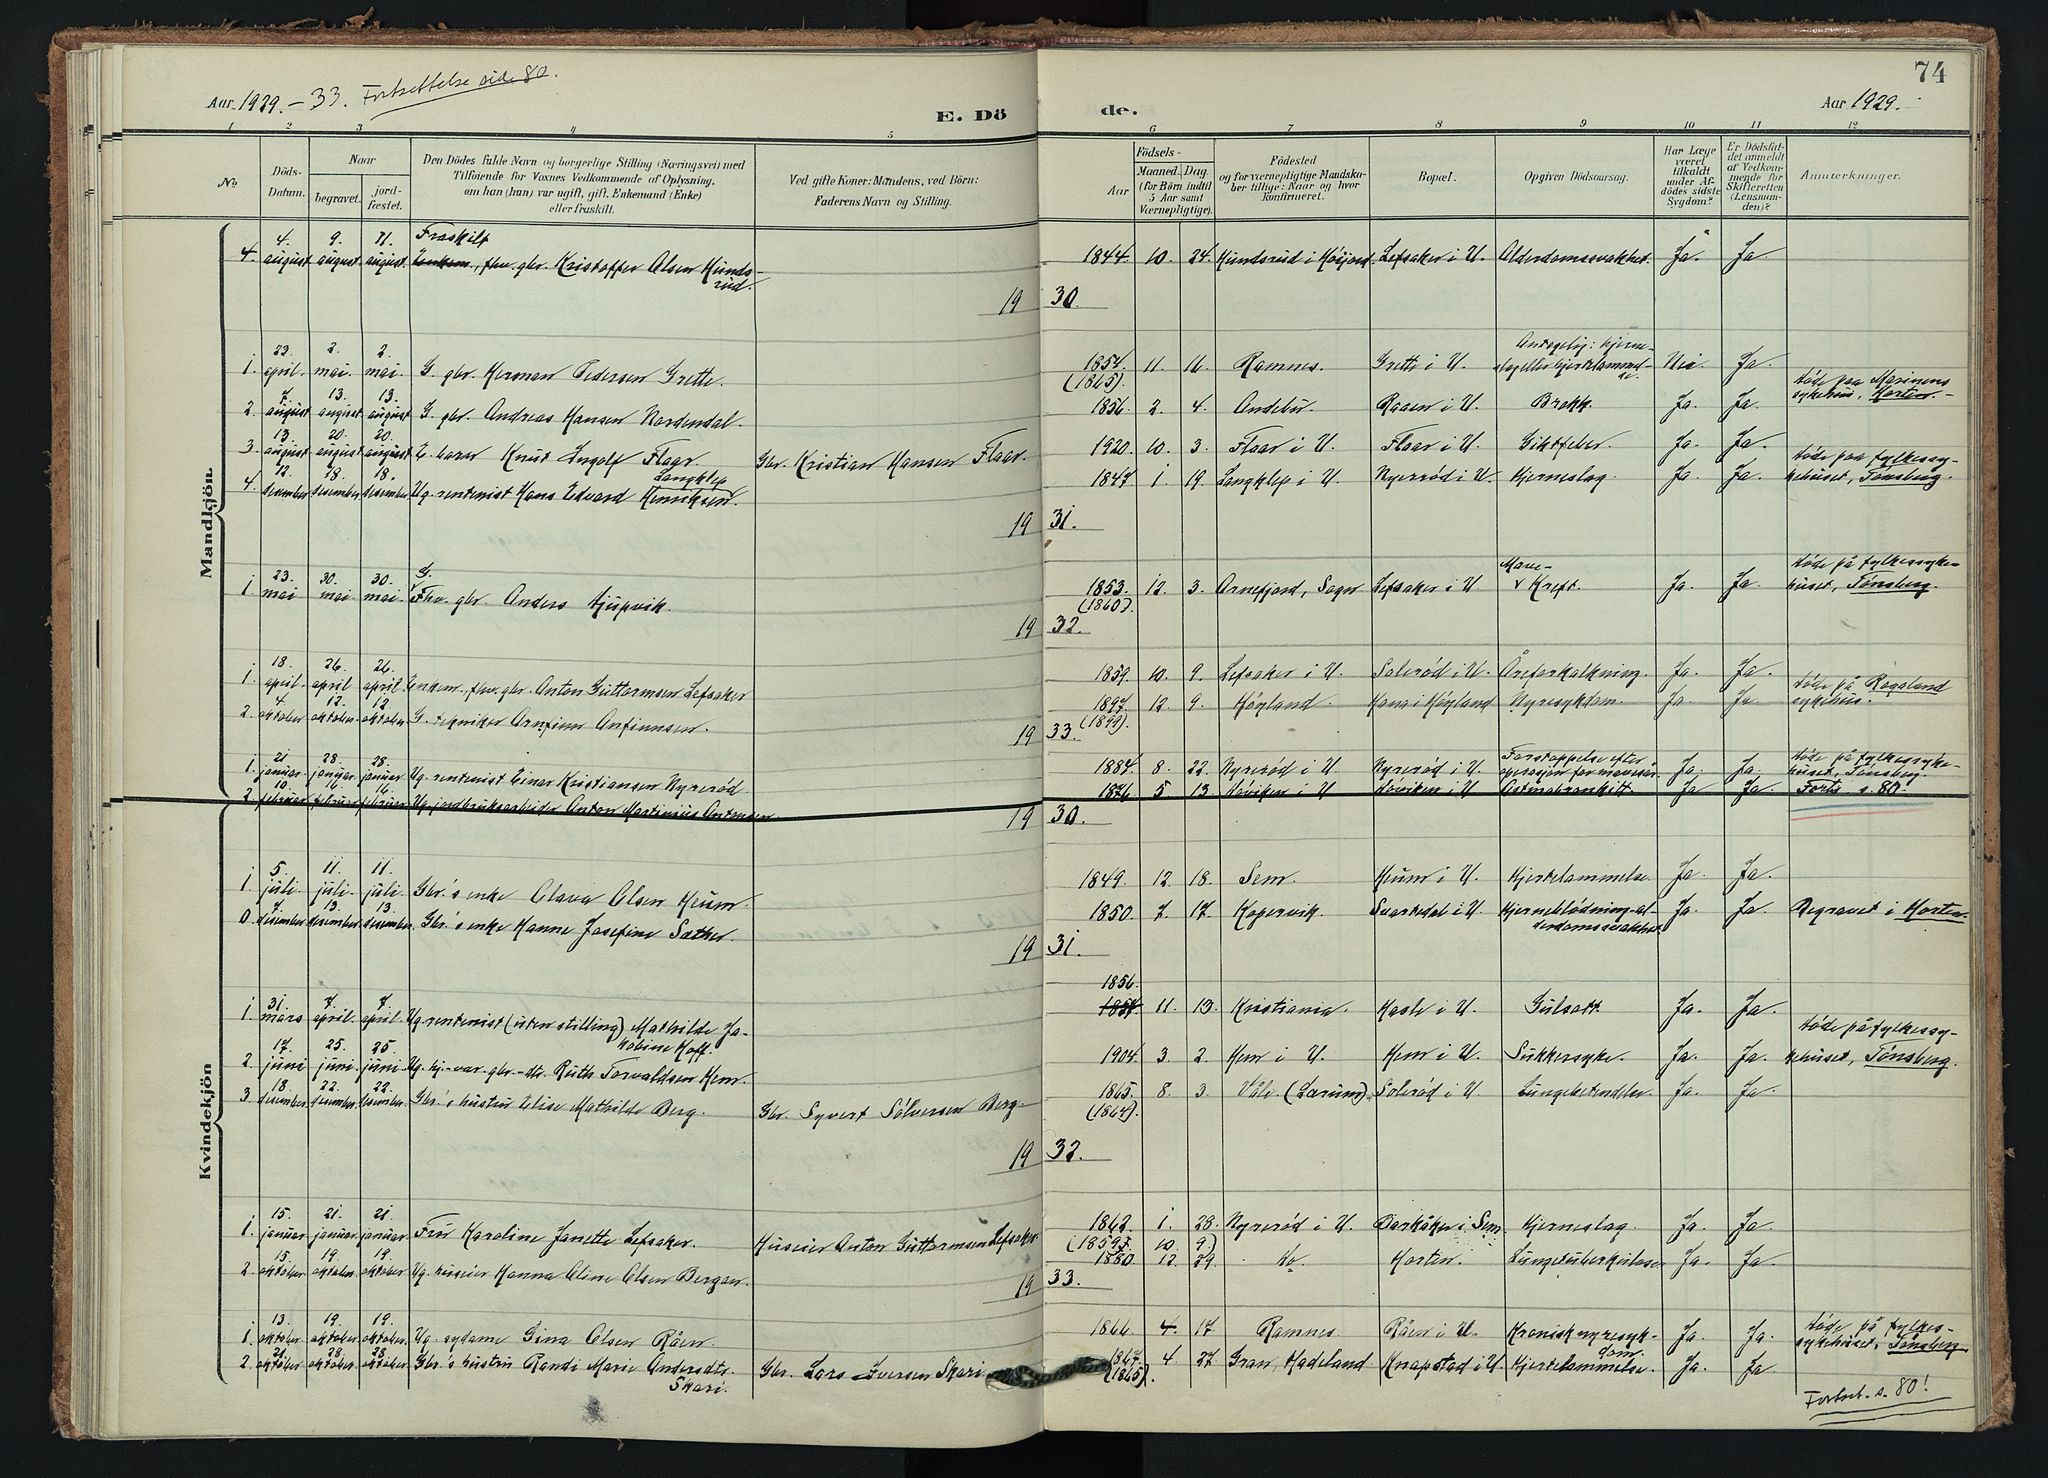 Aar 1929.-33. Fortsettelse side 80.
E. Dö
de.
74
Aar 1929.
1 2 3 4 5 6 7 8 9 10 11 12
No.
Döds-Datum.
Naar
begravet.
jord-fæstet.
Den Dödes fulde Navn og borgerlige Stilling (Næringsvei) med
Tilföiende for Voxnes Vedkommende af Oplysning,
om han (hun) var ugift, gift, Enkemand (Enke)
eller fraskilt.
Ved gifte Koner: Mandens, ved Börn:
Faderens Navn og Stilling.
Aar
Födsels-
Maaned. Dag.
(for Börn indtil
5 Aar samt
Værnepligtige).
Födested
og for værnepligtige Mandska-
ber tillige: Naar og hvor
konfirmeret.
Bopæl.
Opgiven Dödsaarsag.
Har Læge
været
tilkaldt
under Af-
dödes sidste
Sygdom?
Er Dödsfal-
det anmeldt
af Vedkom-
mende for
Skifteretten
(Lensman-
den)?
Anmærkninger.
Mandkjön.
Fraskilt
4. 4. august 9. august 11. august. Enkem., fhv. gbr. Kristoffer Olsen Hunds-
rud.
1844. 10. 24. Hundsrud i Høijord Lefsaker i U. Alderdomssvakhet. Ja. Ja
19 30.
1. 23. april. 2. mai. 2. mai. G. gbr. Herman Pedersen Grette.
1854. (1865). 11. 16. Ramnes. Grette i U. Antagelig: hjerne-
slag eller hjertelammel-
se. Nei. Ja.
2. 7. august 13. august 13. august G. gbr. Andreas Hansen Nordendal.
1856. 2. 4. Andebu. Raaen i U. Brokk. Ja. Ja. døde paa Marinens
sykehus, Horten.
3. 13. august 20. august 20. august Knut Ingolf Flaar. Gbr. Kristian Hansen Flaar.
1920. 10. 3. Flaar i U. Flaar i U. Giktfeber. Ja. Ja.
4. 12. desember 18. desember 18. desember. Ug. rentenist Hans Edvard Henriksen. Langklep
1847. 1. 19. Langklep i U. Nyerød i U. Hjerneslag. Ja. Ja. døde paa fylkessy-
kehuset, Tønsberg.
19 31.
1. 23. mai 30. mai 30. mai. G. Fhv. gbr. Anders Djupvik.
1853. (1860). 12. 3. Arnefjord, Sogn Lefsaker i U. Mave-
v Kreft. Ja. Ja. døde på fylkessyke-
huset, Tønsberg.
19 32.
1. 18. april. 26. april 26. april Enkem., fhv. gbr. Anton Guttormsen Lefsaker
1859. 10. 9. Lefsaker i U. Solerød i U. Åreforkalkning. Ja. Ja.
2. 4. oktober 12. oktober 12. oktober. G. tekniker Arnfinn Anfinnsen.
1897. (1899). 12. 9. Høyland. Hana i Høyland Nyresykdom. Ja Ja døde på Rogaland
sykehus.
19 33.
1. 21. januar. 28. januar. 28. januar Ug. rentenist Einar Kristiansen Nyrerød
1884. 8. 22. Nyrerød i U. Nyrerød i U. Forstoppelse efter
operasjon for mavesår. Ja. Ja. døde på fylkessyke-
huset, Tønsberg.
2. 10. februar 16. februar 16. februar Ug. jordbruksarbeider Anton Martinius Antonsen
1876. 5 13. i U. i U. Ja Ja Forts. s. 80.
Kvindekjön
19 30.
1. 5. juli. 11. juli. 11. juli. Gbr.'s enke Olava Olsen Heum.
1849. 12. 18. Sem. Heum i U. Hjertelammelse Ja. Ja.
0. 7. desember. 13. desember. 13. desember. Gbr.'s enke Hanne Josefine Sæther.
1850. 7. 17. Kopervik. Svartedal i U. Hjerneblødning-al-
derdomssvakhet Ja. Ja. Begravet i Horten.
19 31.
1. 31. mars 7. april. 7. april Ug. rentenist (uten stilling) Mathilde Ja-
kobine Hoff.
1856. 1857. 11. 13. Kristiania. Hasle i U. Gulsott. Ja. Ja.
2. 17. juni 25. juni 25. juni Ug. hj.-vær. gbr.-dtr. Ruth Torvaldsen Hem.
1904. 3. 2. Hem i U. Hem i U. Sukkersyke. Ja. Ja. døde på fylkessy-
kehuset, Tønsberg.
3. 18. desember. 22. desember. 22. desember. Gbr.'s hustru Elise Mathilde Berg. Gbr. Syvert Sølversen Berg.
1865. (1864). 8. 3. Våle (Lærum). Solerød i U. Lungebetendelse. Ja. Ja
19 32.
1. 15. januar 21. januar. 21. januar. Fru Karoline Janette Lefsaker. Huseier Anton Guttormsen Lefsaker.
1862. (1859) 1. 28. 10. 9) Nyrerød i U. Barkåker i Sem Hjerneslag. Ja. Ja
2. 15. oktober 19. oktober. 19. oktober Ug. huseier Hanna Oline Olsen Bergan.
1880. 12. 29. do. Horten. Lungetuberkulose Ja. Ja
19 33.
1. 13. oktober. 19. oktober. 19. oktober. Ug. sydame Gina Olsen Råen.
1866. 4. 17 Ramnes. Råen i U. Kronisk nyresyk-
dom. Ja. Ja. døde på fylkes-
sykehuset, Tønsberg
2. 21. oktober 28. oktober. 28. oktober Gbr.'s hustru Randi Marie Andersdtr.
Skari. Gbr. Lars Iversen Skari
1867. (1865). 4. 27. Gran, Hadeland Knapstad i U. Hjertelammelse. Ja. Ja
Fortset. s. 80!